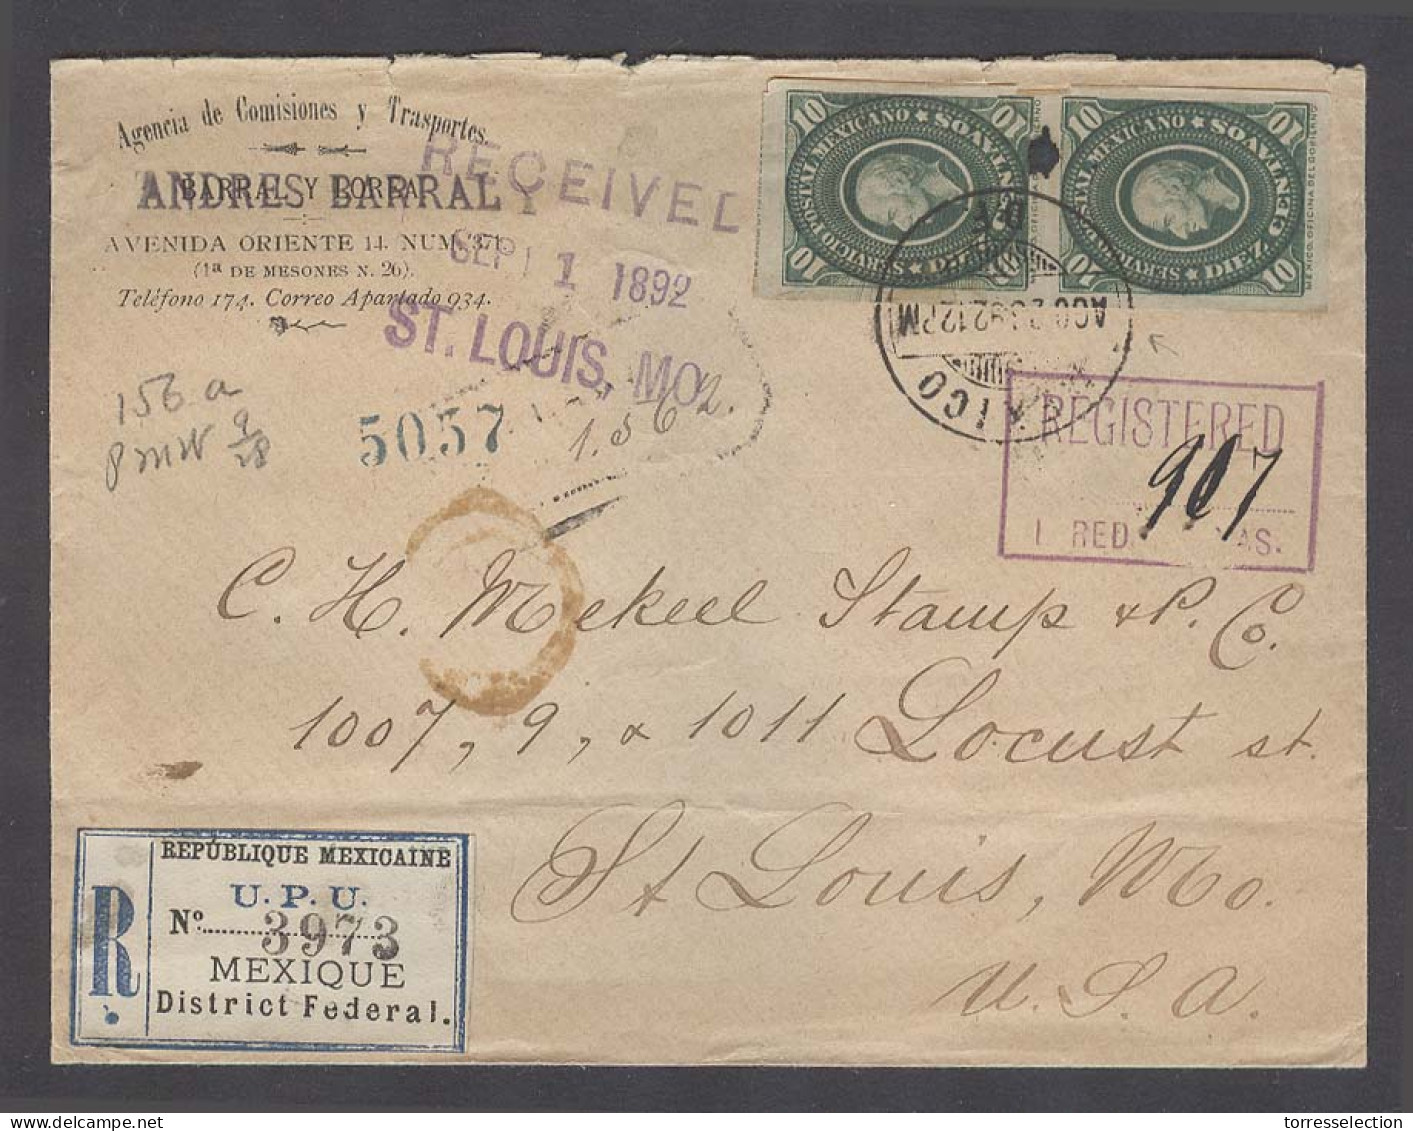 Agencia de Comisiones y Trasportes.
ANDRES BARRAL Y
AVENIDA ORIENTE 14. NUM. 371
(1ª DE MESONES N. 26).
Teléfono 174. Correo Apartado 934.
RECEIVED
SEP 1 1892
ST. LOUIS, MO.
10 SERVICIO POSTAL MEXICANO 10
10 DIEZ CENTAVOS 10
10 SERVICIO POSTAL MEXICANO 10
10 DIEZ CENTAVOS 10
MEXICO. OFICINA DEL GOBIERNO
AGO 23 92 12 PM
156 a
5057
1.562.
REGISTERED
907
RED AS.
C. H. Mekeel Stamp & P. Co.
1007, 9, & 1011 Locust st.
St Louis, Mo.
U. S. A.
R
REPÚBLIQUE MEXICAINE
U. P. U.
Nº 3973
MEXIQUE
District Federal.
torresselection